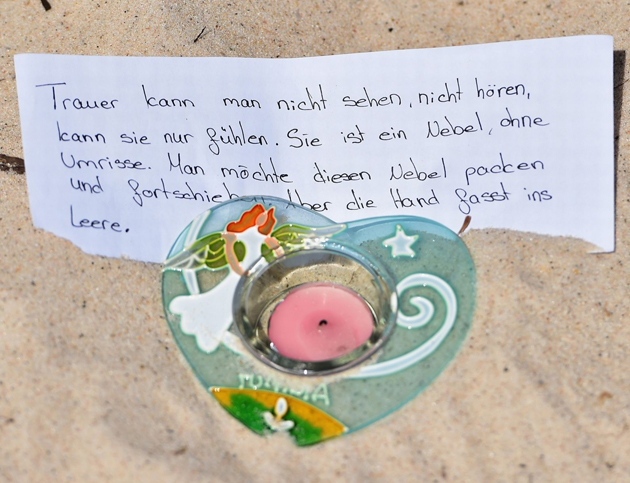 Trauer kann man nicht sehen, nicht hören,
kann sie nur fühlen. Sie ist ein Nebel, ohne
Umrisse. Man möchte diesen Nebel packen
und die Hand fasst ins
Leere.